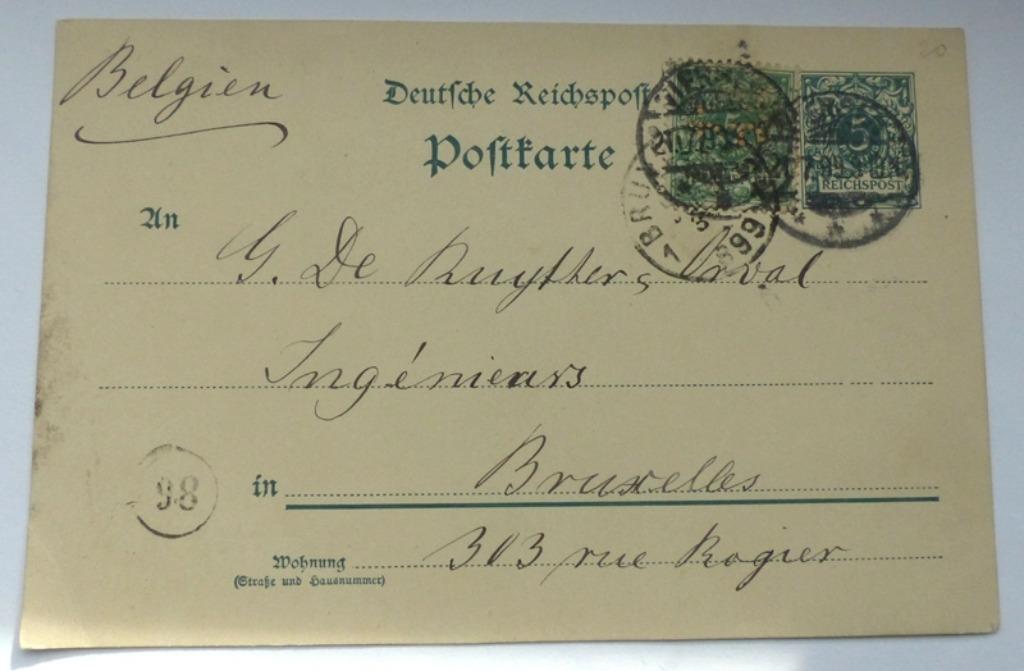 Belgien
Deutsche Reichspost
Postkarte
5
REICHSPOST
An
G. De Ruytter, Orval
Ingénieurs
in Bruxelles
Wohnung 303 rue Rogier
(Straße und Hausnummer)
98
20